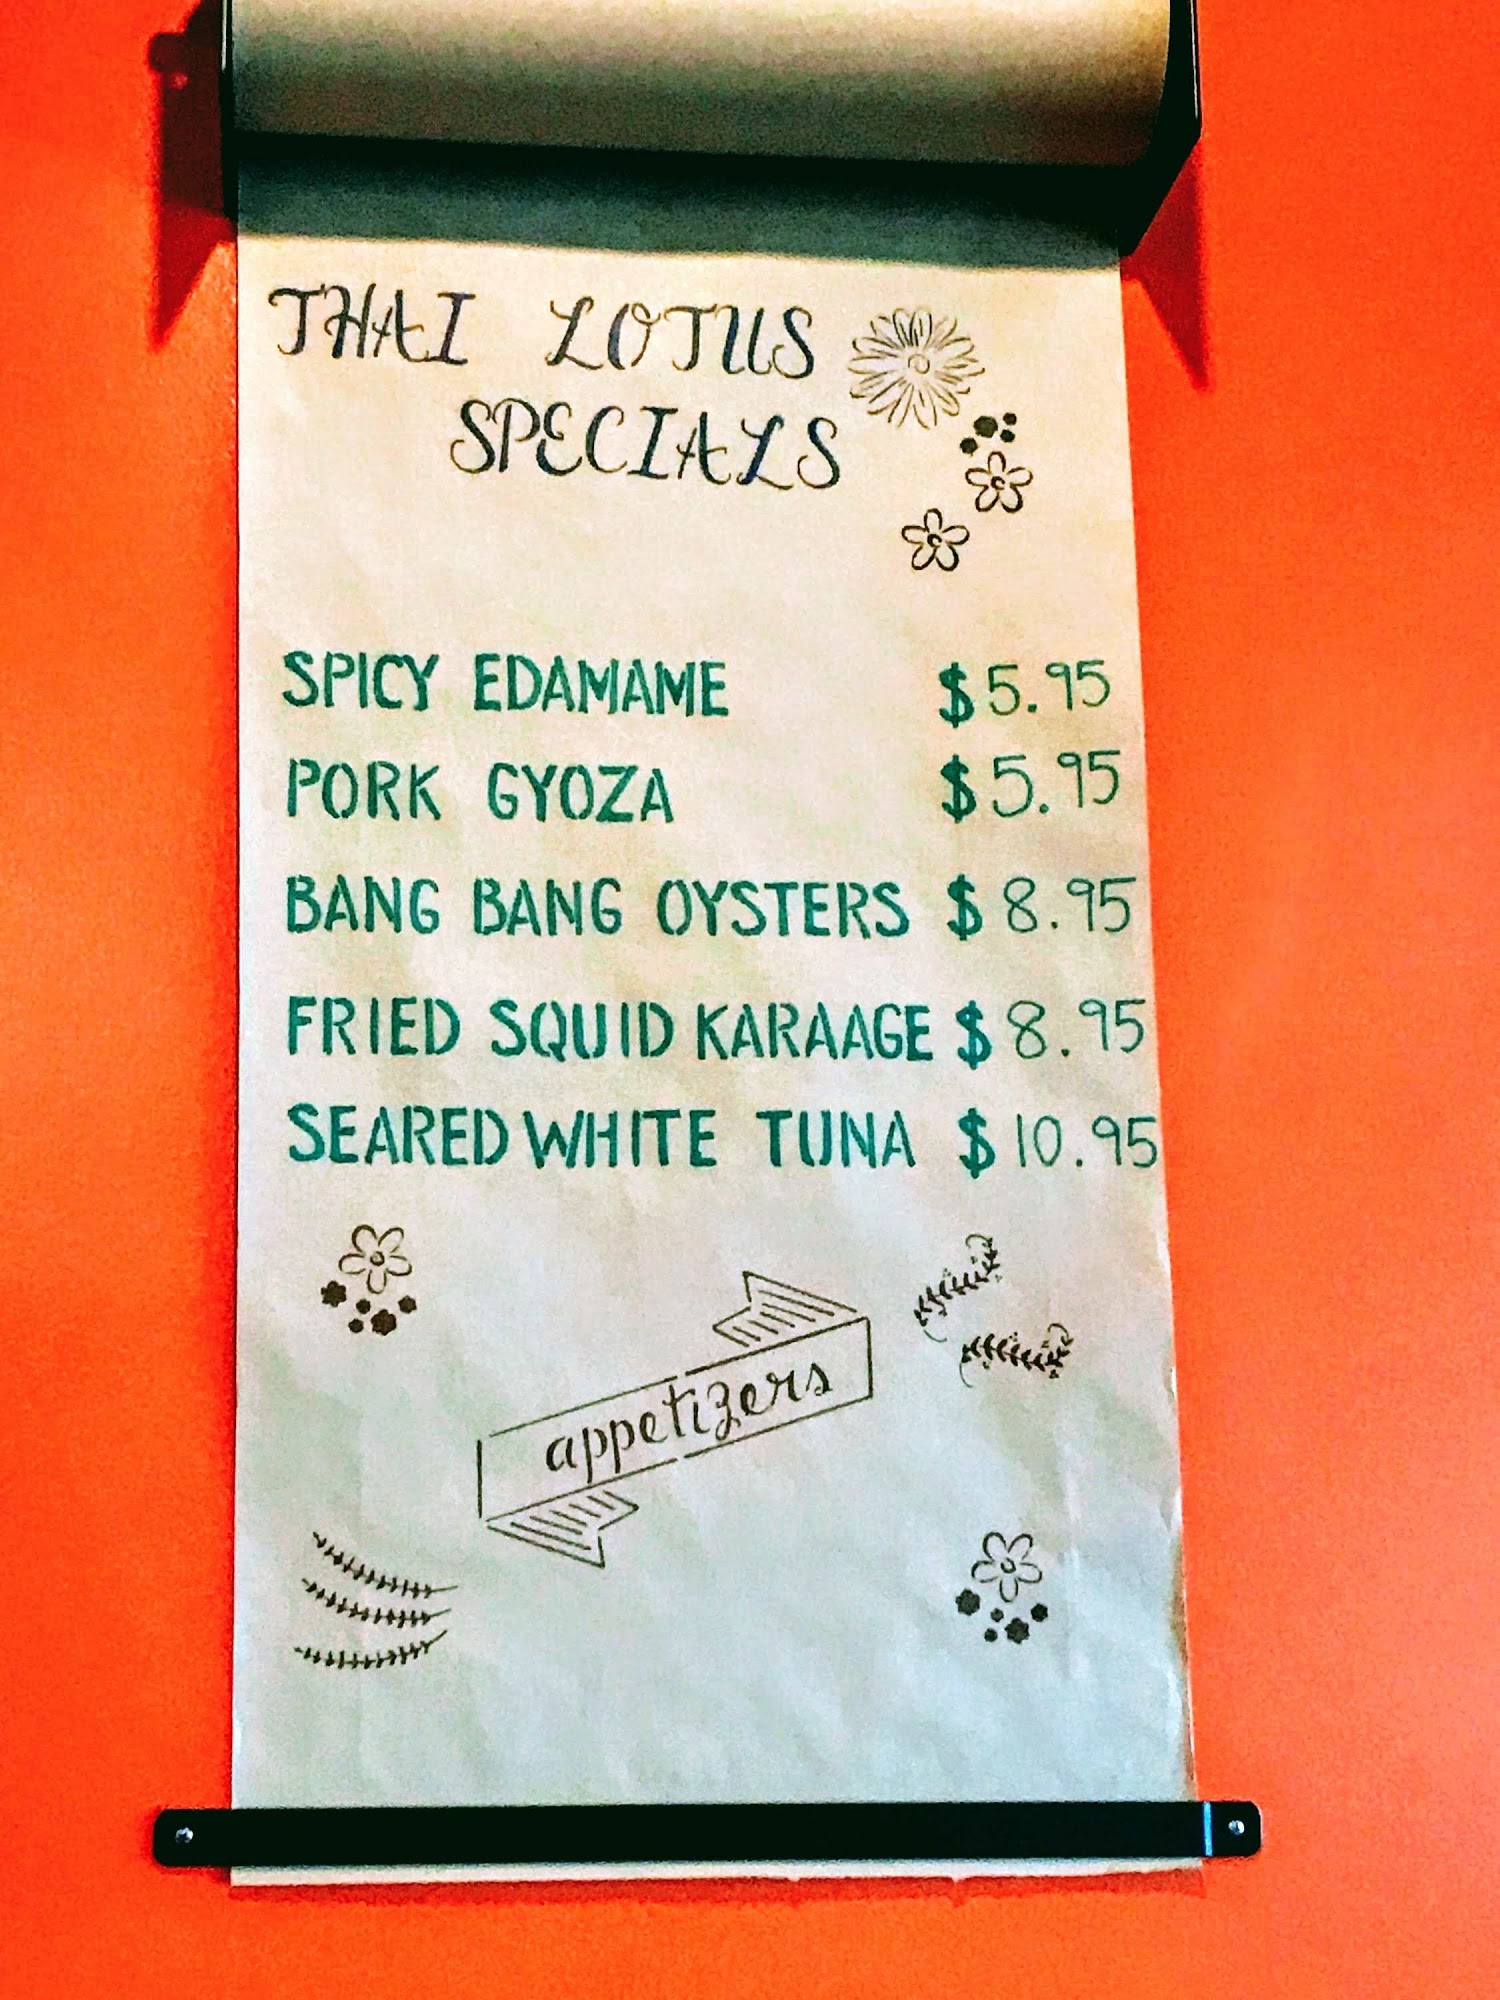 THAI LOTUS
SPECIALS
SPICY EDAMAME $5.95
PORK GYOZA $5.95
BANG BANG OYSTERS $8.95
FRIED SQUID KARAAGE $8.95
SEARED WHITE TUNA $10.95
appetizers